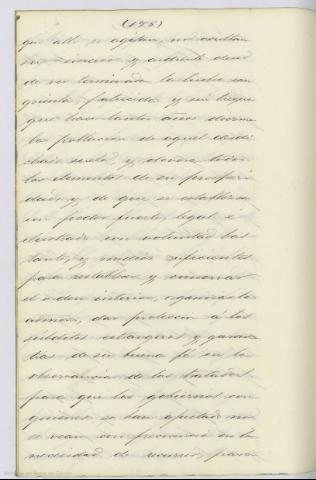 (176)
que allí se agitan, no ocultan
su sincero y ardiente deseo
de ver terminada la lucha san
grienta, fatricida y sin tregua
que hace tantos años diezma
la población de aquel desdi
chado suelo, y devora todos
los elementos de su prosperi
dad; y de que se establezca
un poder fuerte, legal e
ilustrado con voluntad bas
tante, y medios suficientes
para restablecer y conservar
el orden interior, organizar la
admon, dar proteccion á los
súbditos estrangeros y garan
tias de su buena fé en la
observancia de los tratados
para que los gobiernos con
quienes se han ajustado no
se vean con frecuencia en la
necesidad de recurrir, para